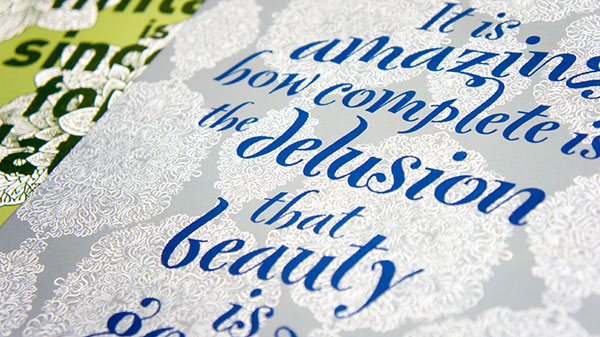 is
It is
amazing
how complete is
the delusion
that
beauty
is